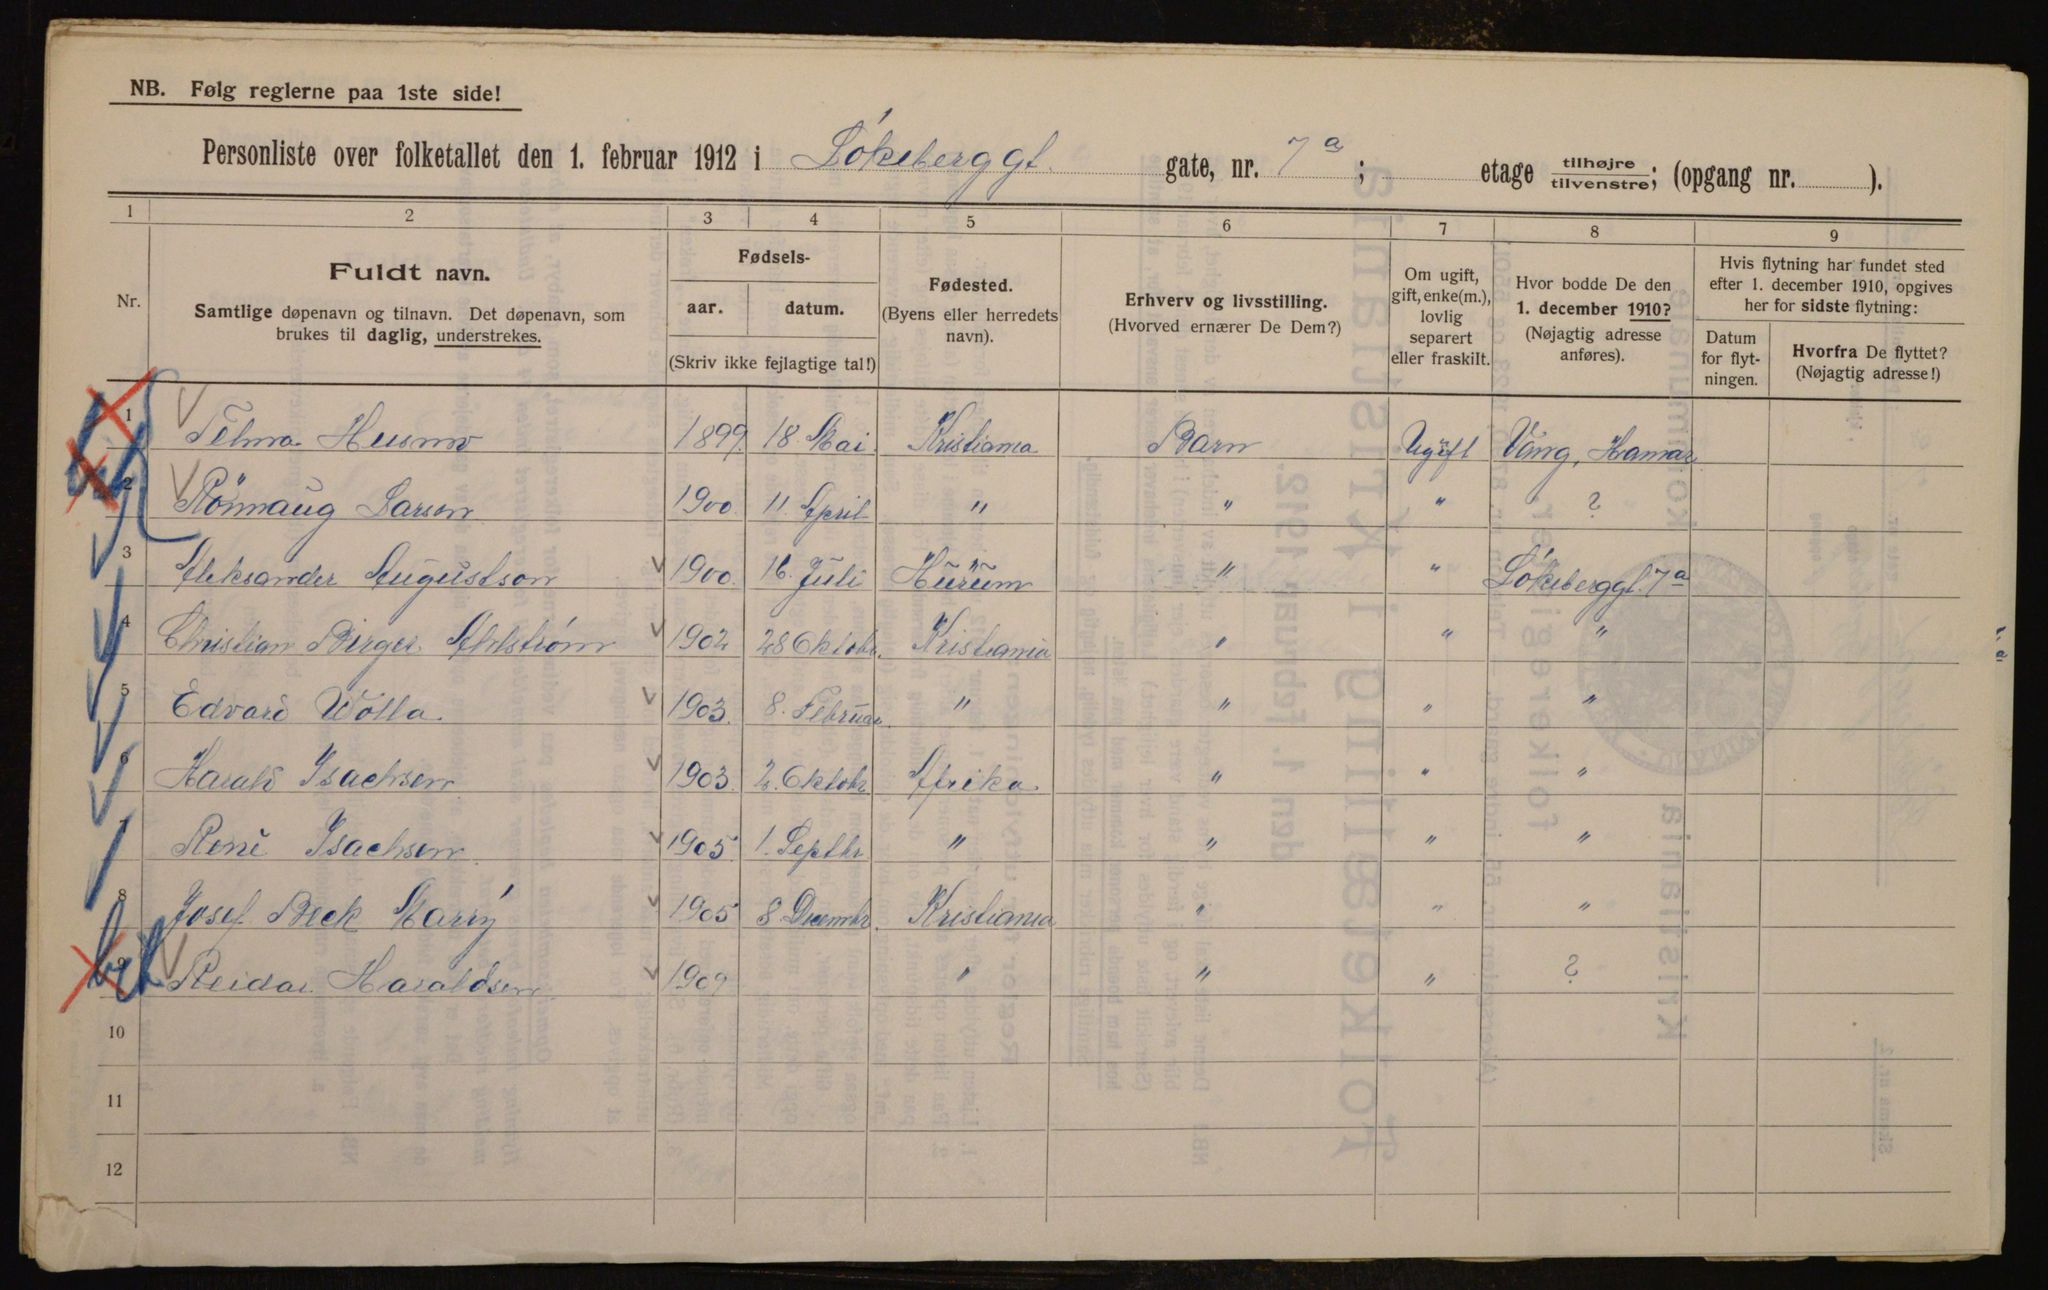 NB. Følg reglerne paa 1ste side!
Personliste over folketallet den 1. februar 1912 i Løkeberggt. gate, nr. 7a; etage tilhøjre/tilvenstre; (opgang nr. ).
1 2 3 4 5 6 7 8 9
Nr.
Fuldt navn.
Samtlige døpenavn og tilnavn. Det døpenavn, som
brukes til daglig, understrekes.
Fødsels-
aar. datum.
(Skriv ikke fejlagtige tal!)
Fødested.
(Byens eller herredets
navn).
Erhverv og livsstilling.
(Hvorved ernærer De Dem?)
Om ugift,
gift, enke(m.),
lovlig
separert
eller fraskilt.
Hvor bodde De den
1. december 1910?
(Nøjagtig adresse
anføres).
Hvis flytning har fundet sted
efter 1. december 1910, opgives
her for sidste flytning:
Datum
for flyt-
ningen.
Hvorfra De flyttet?
(Nøjagtig adresse!)
1 Telma Husmo 1899. 18 Mai. Kristiania Barn Ugift Vang, Hamar
2 Rönnaug Larsen 1900. 11. April " " " ?
3 Aleksander Augustson 1900. 16. Juli Hurum " " Løkeberggt. 7a
4 Christian Birger Ahlstrøm 1902 28 Oktobr. Kristiania " " "
5 Edvard Wolla. 1903. 8. Februar. " " " "
6 Harald Isachsen 1903. 2. Oktobr. Afrika. " " "
7 René Isachsen 1905. 1. Septbr. " " " "
8 Josef Beck Marry 1905 8 Decembr. Kristiania " " "
9 Reidar Haraldsen 1909 " " " ?
10
11
12